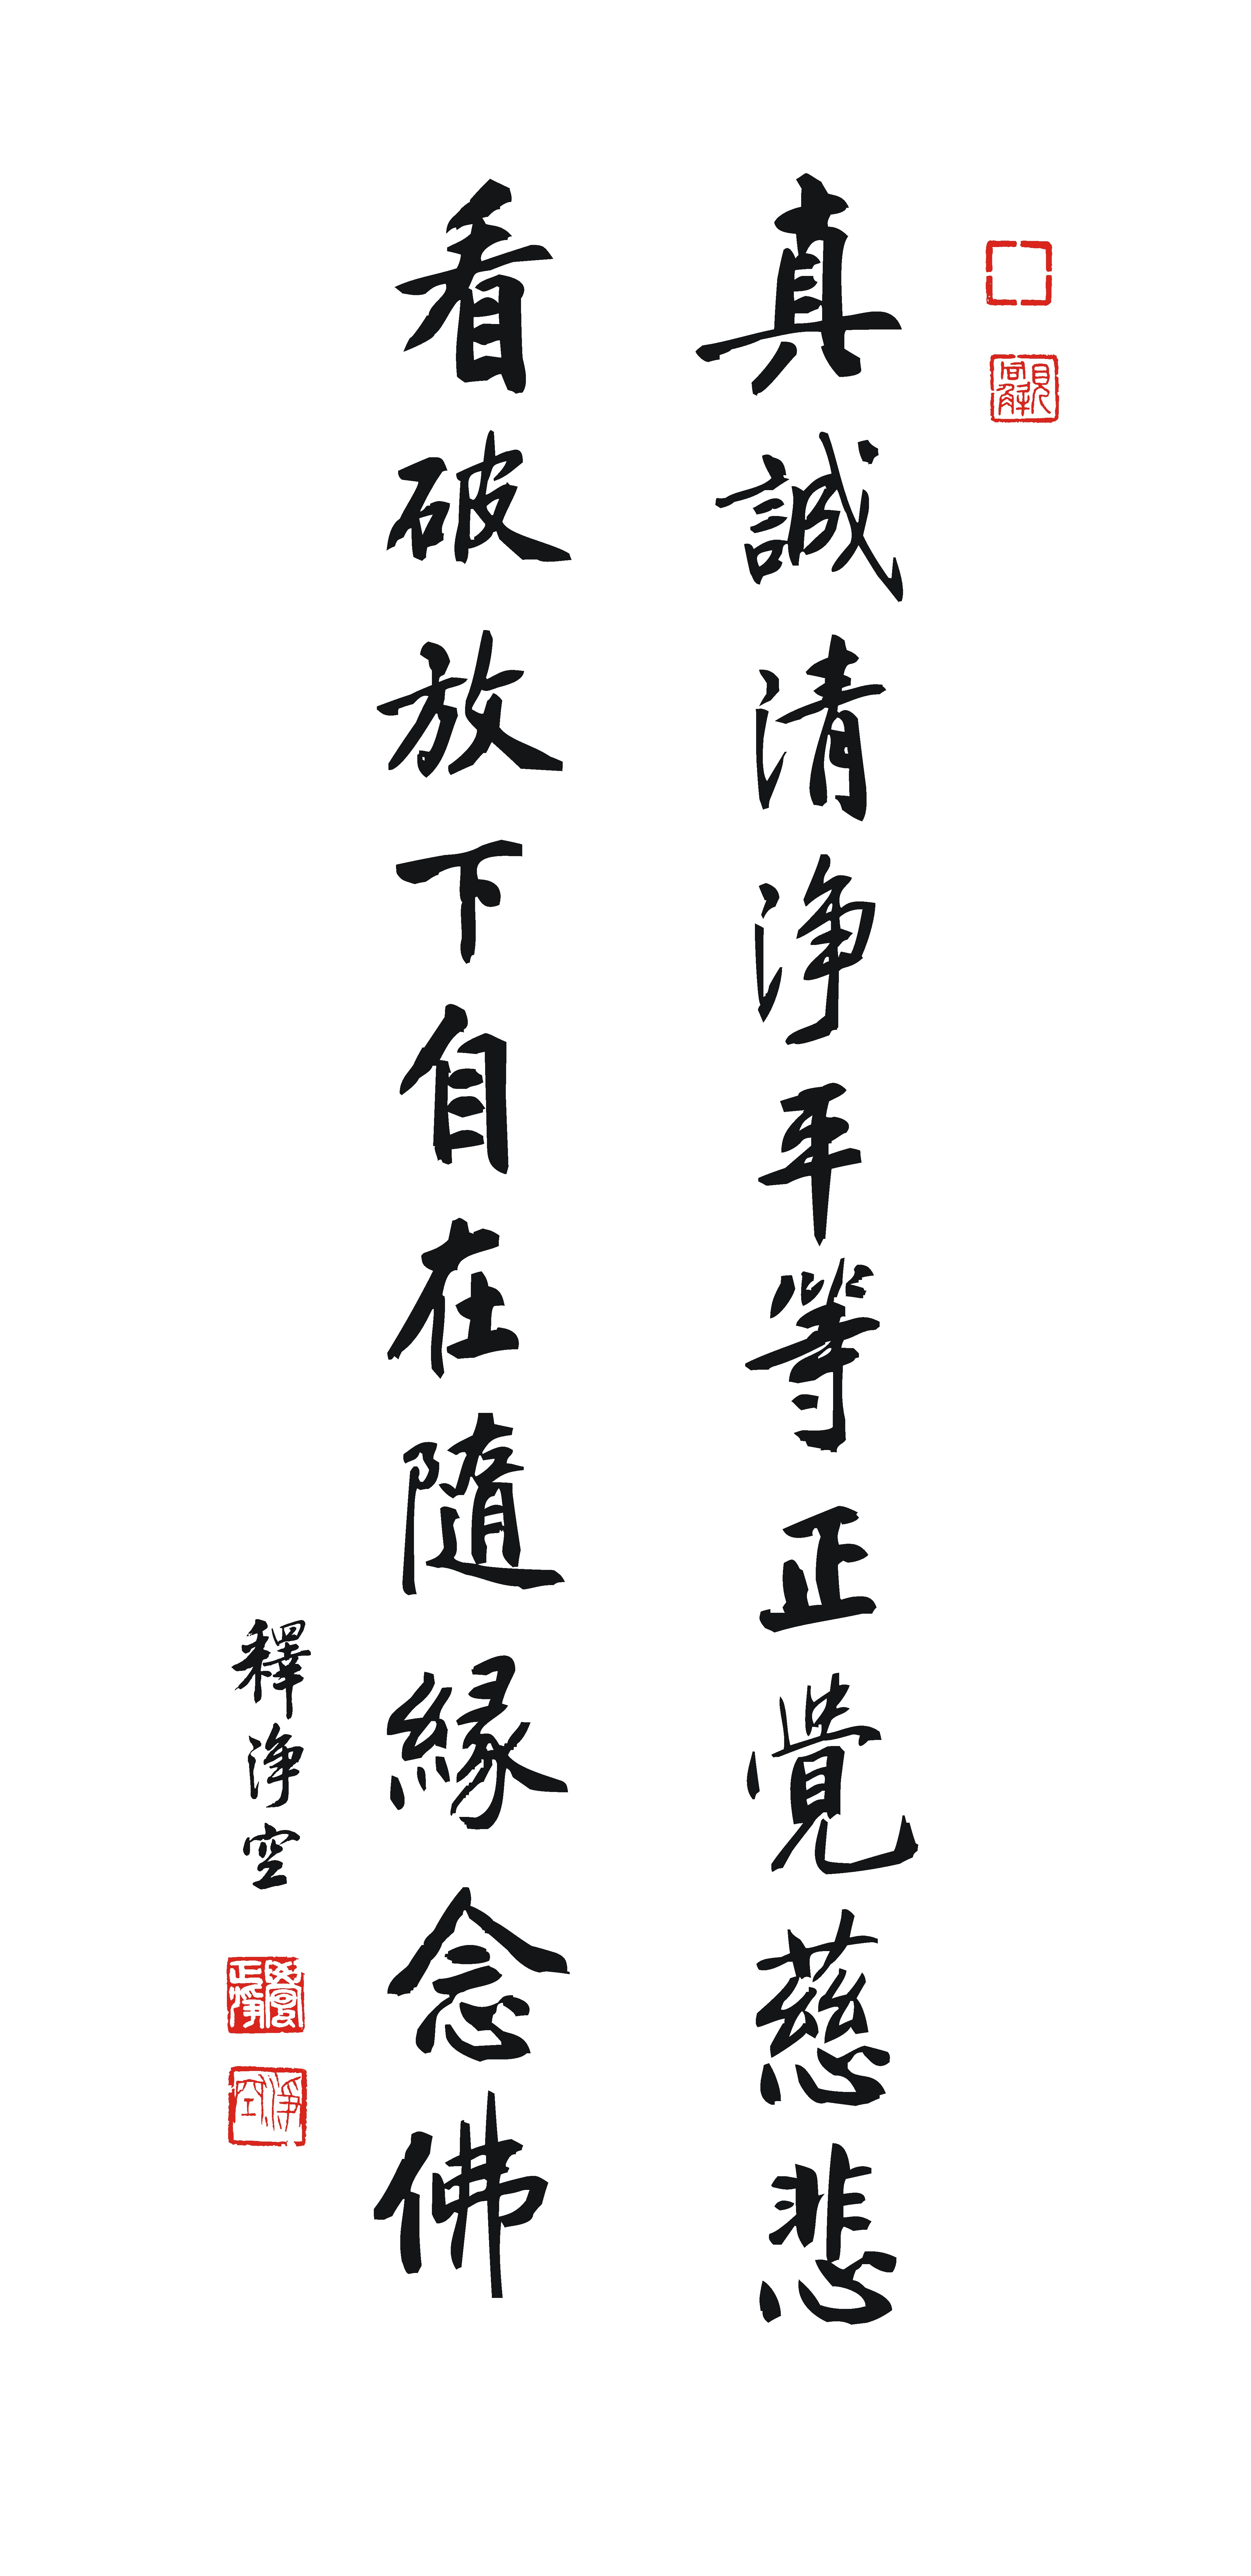 真誠清淨平等正覺慈悲
看破放下自在隨緣念佛
釋淨空
淨空